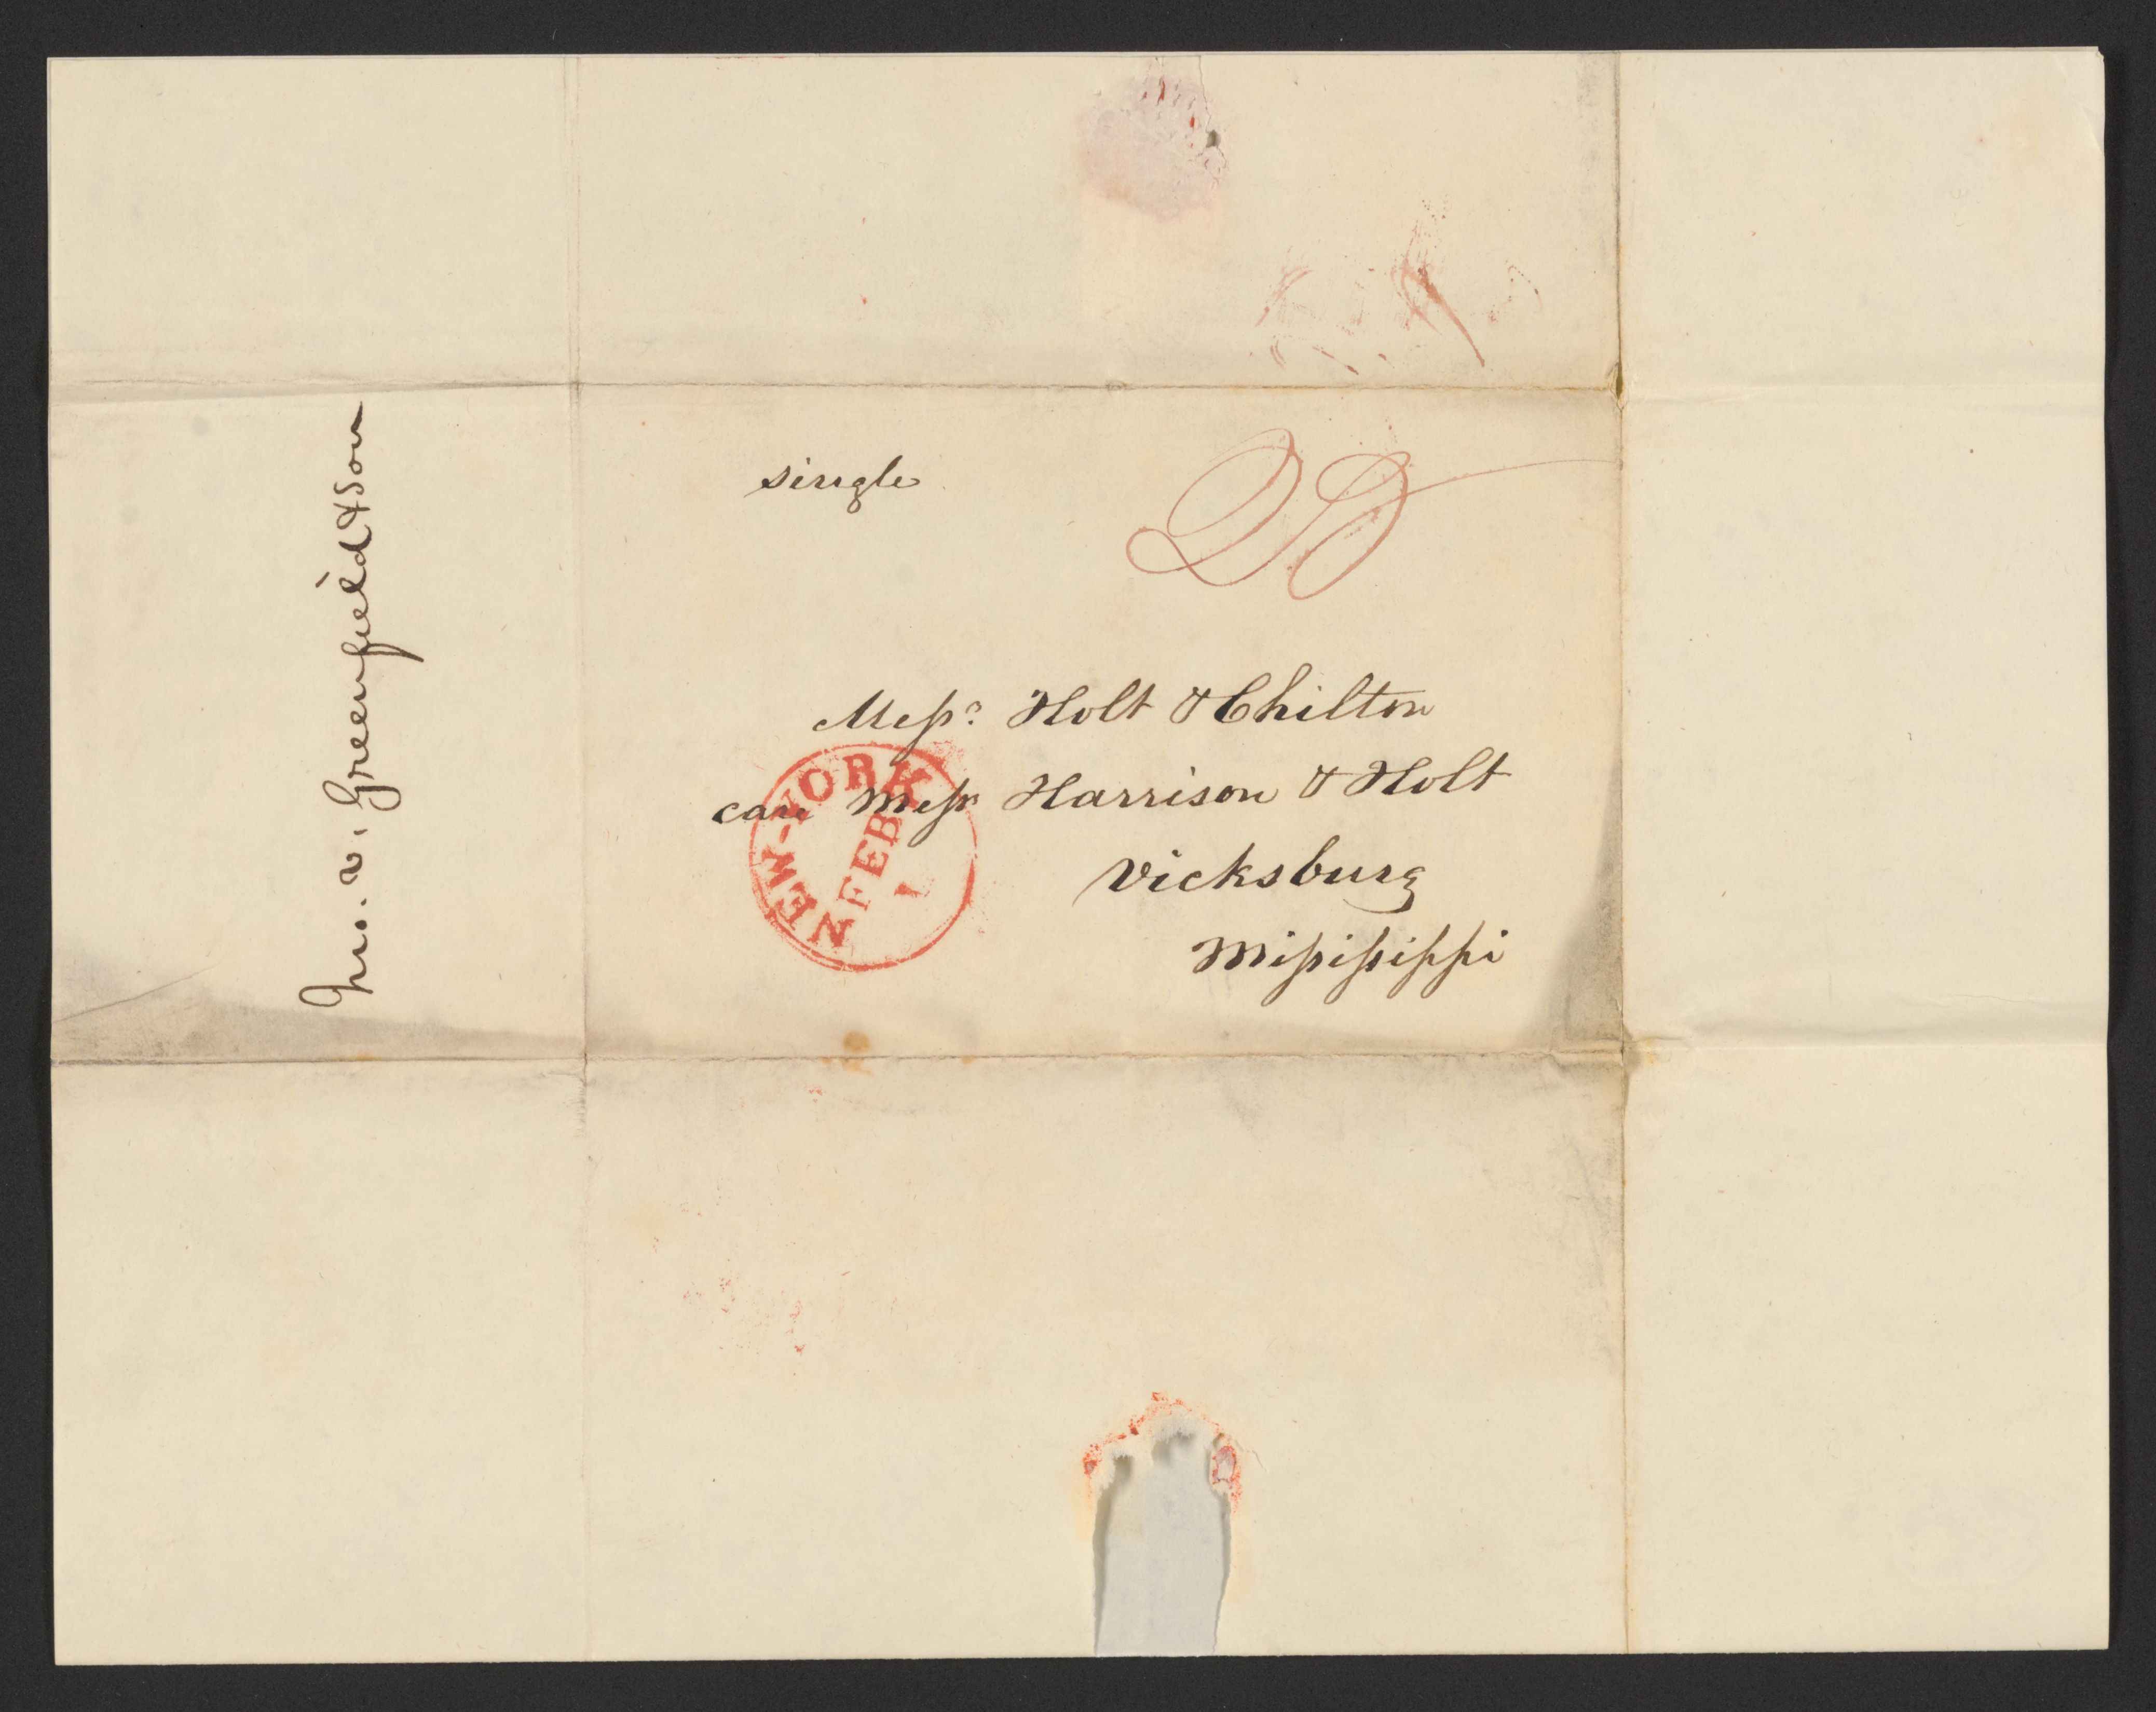 single
Messrs Holt & Chilton
care Messrs Harrison & Holt
Vicksburg
Mississippi
NEW-YORK
FEB
1
v. Greenfield & Son